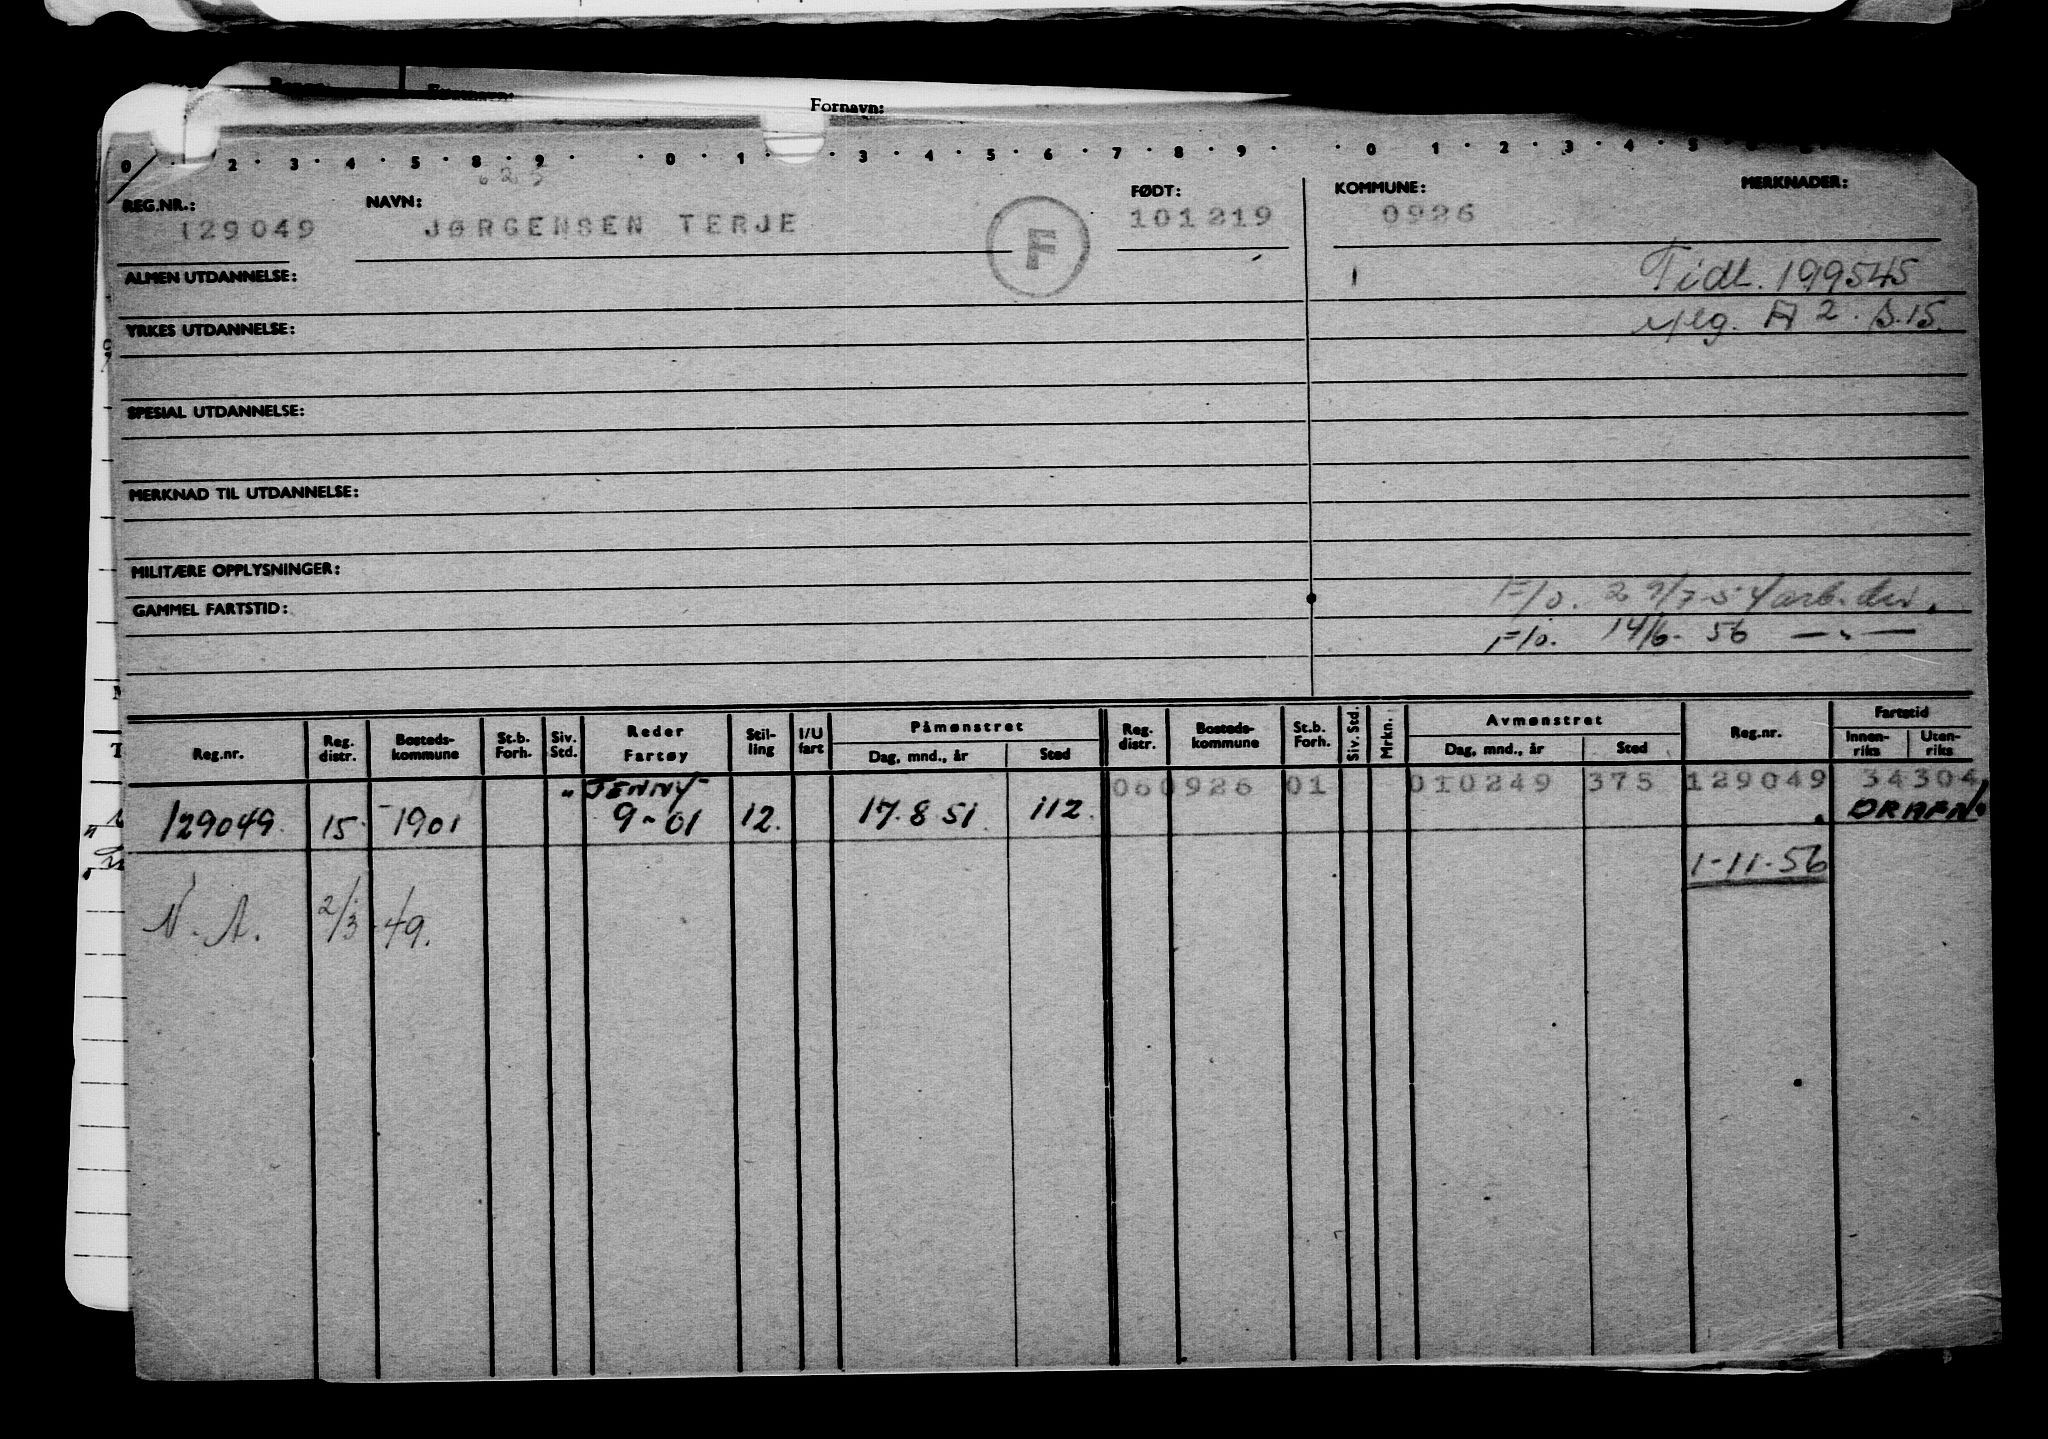 Fornavn:
0 2 3 4 5 8 9 0 1 3 4 5 6 7 8 9 0 1 2 3 4 5
REG.NR.: NAVN: FØDT: KOMMUNE: MERKNADER:
129049 JØRGENSEN TERJE F 101219 0926
ALMEN UTDANNELSE: Tidl. 199545
YRKES UTDANNELSE: A 2. S.15.
SPESIAL UTDANNELSE:
MERKNAD TIL UTDANNELSE:
MILITÆRE OPPLYSNINGER:
F/o. 29/7-54
GAMMEL FARTSTID:
F/o. 14/6-56 — " —
Reg.nr. Reg. distr. Bosteds-kommune St.b. Forh. Siv. Std. Reder Fartøy Stil-ling I/U fart Påmønstret Dag, mnd., år Sted Reg. distr. Bosteds-kommune St.b. Forh. Siv. Std. Mrkn. Avmønstret Dag, mnd., år Sted Reg.nr. Fartstid Innen-riks Uten-riks
"JENNY" 060926 01 010249 375 129049 34304
129049 15 1901 9-01 12. 17.8 51 112
1-11-56
N.A. 2/3-49.